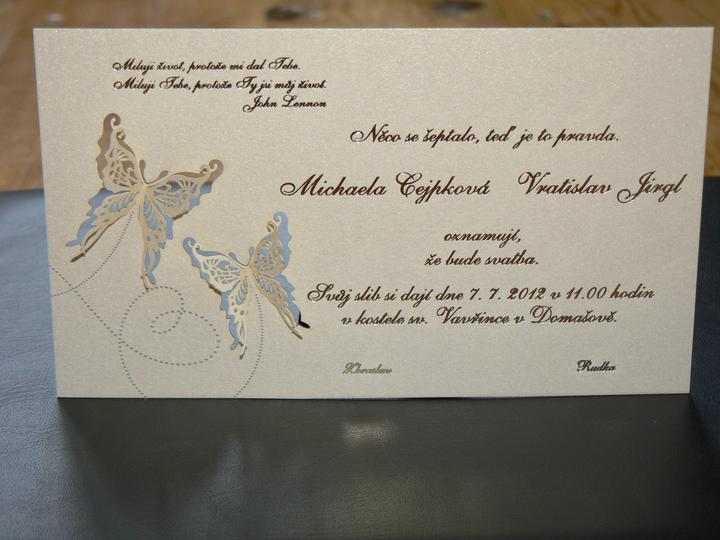 Miluji život, protože mi dal Tebe.
Miluji Tebe, protože Ty jsi můj život.
John Lennon
Něco se šeptalo, teď je to pravda.
Michaela Cejpková Vratislav Jirgl
oznamují,
že bude svatba.
Svůj slib si dají dne 7. 7. 2012 v 11.00 hodin
v kostele sv. Vavřince v Domašově.
Zbraslav Rudka